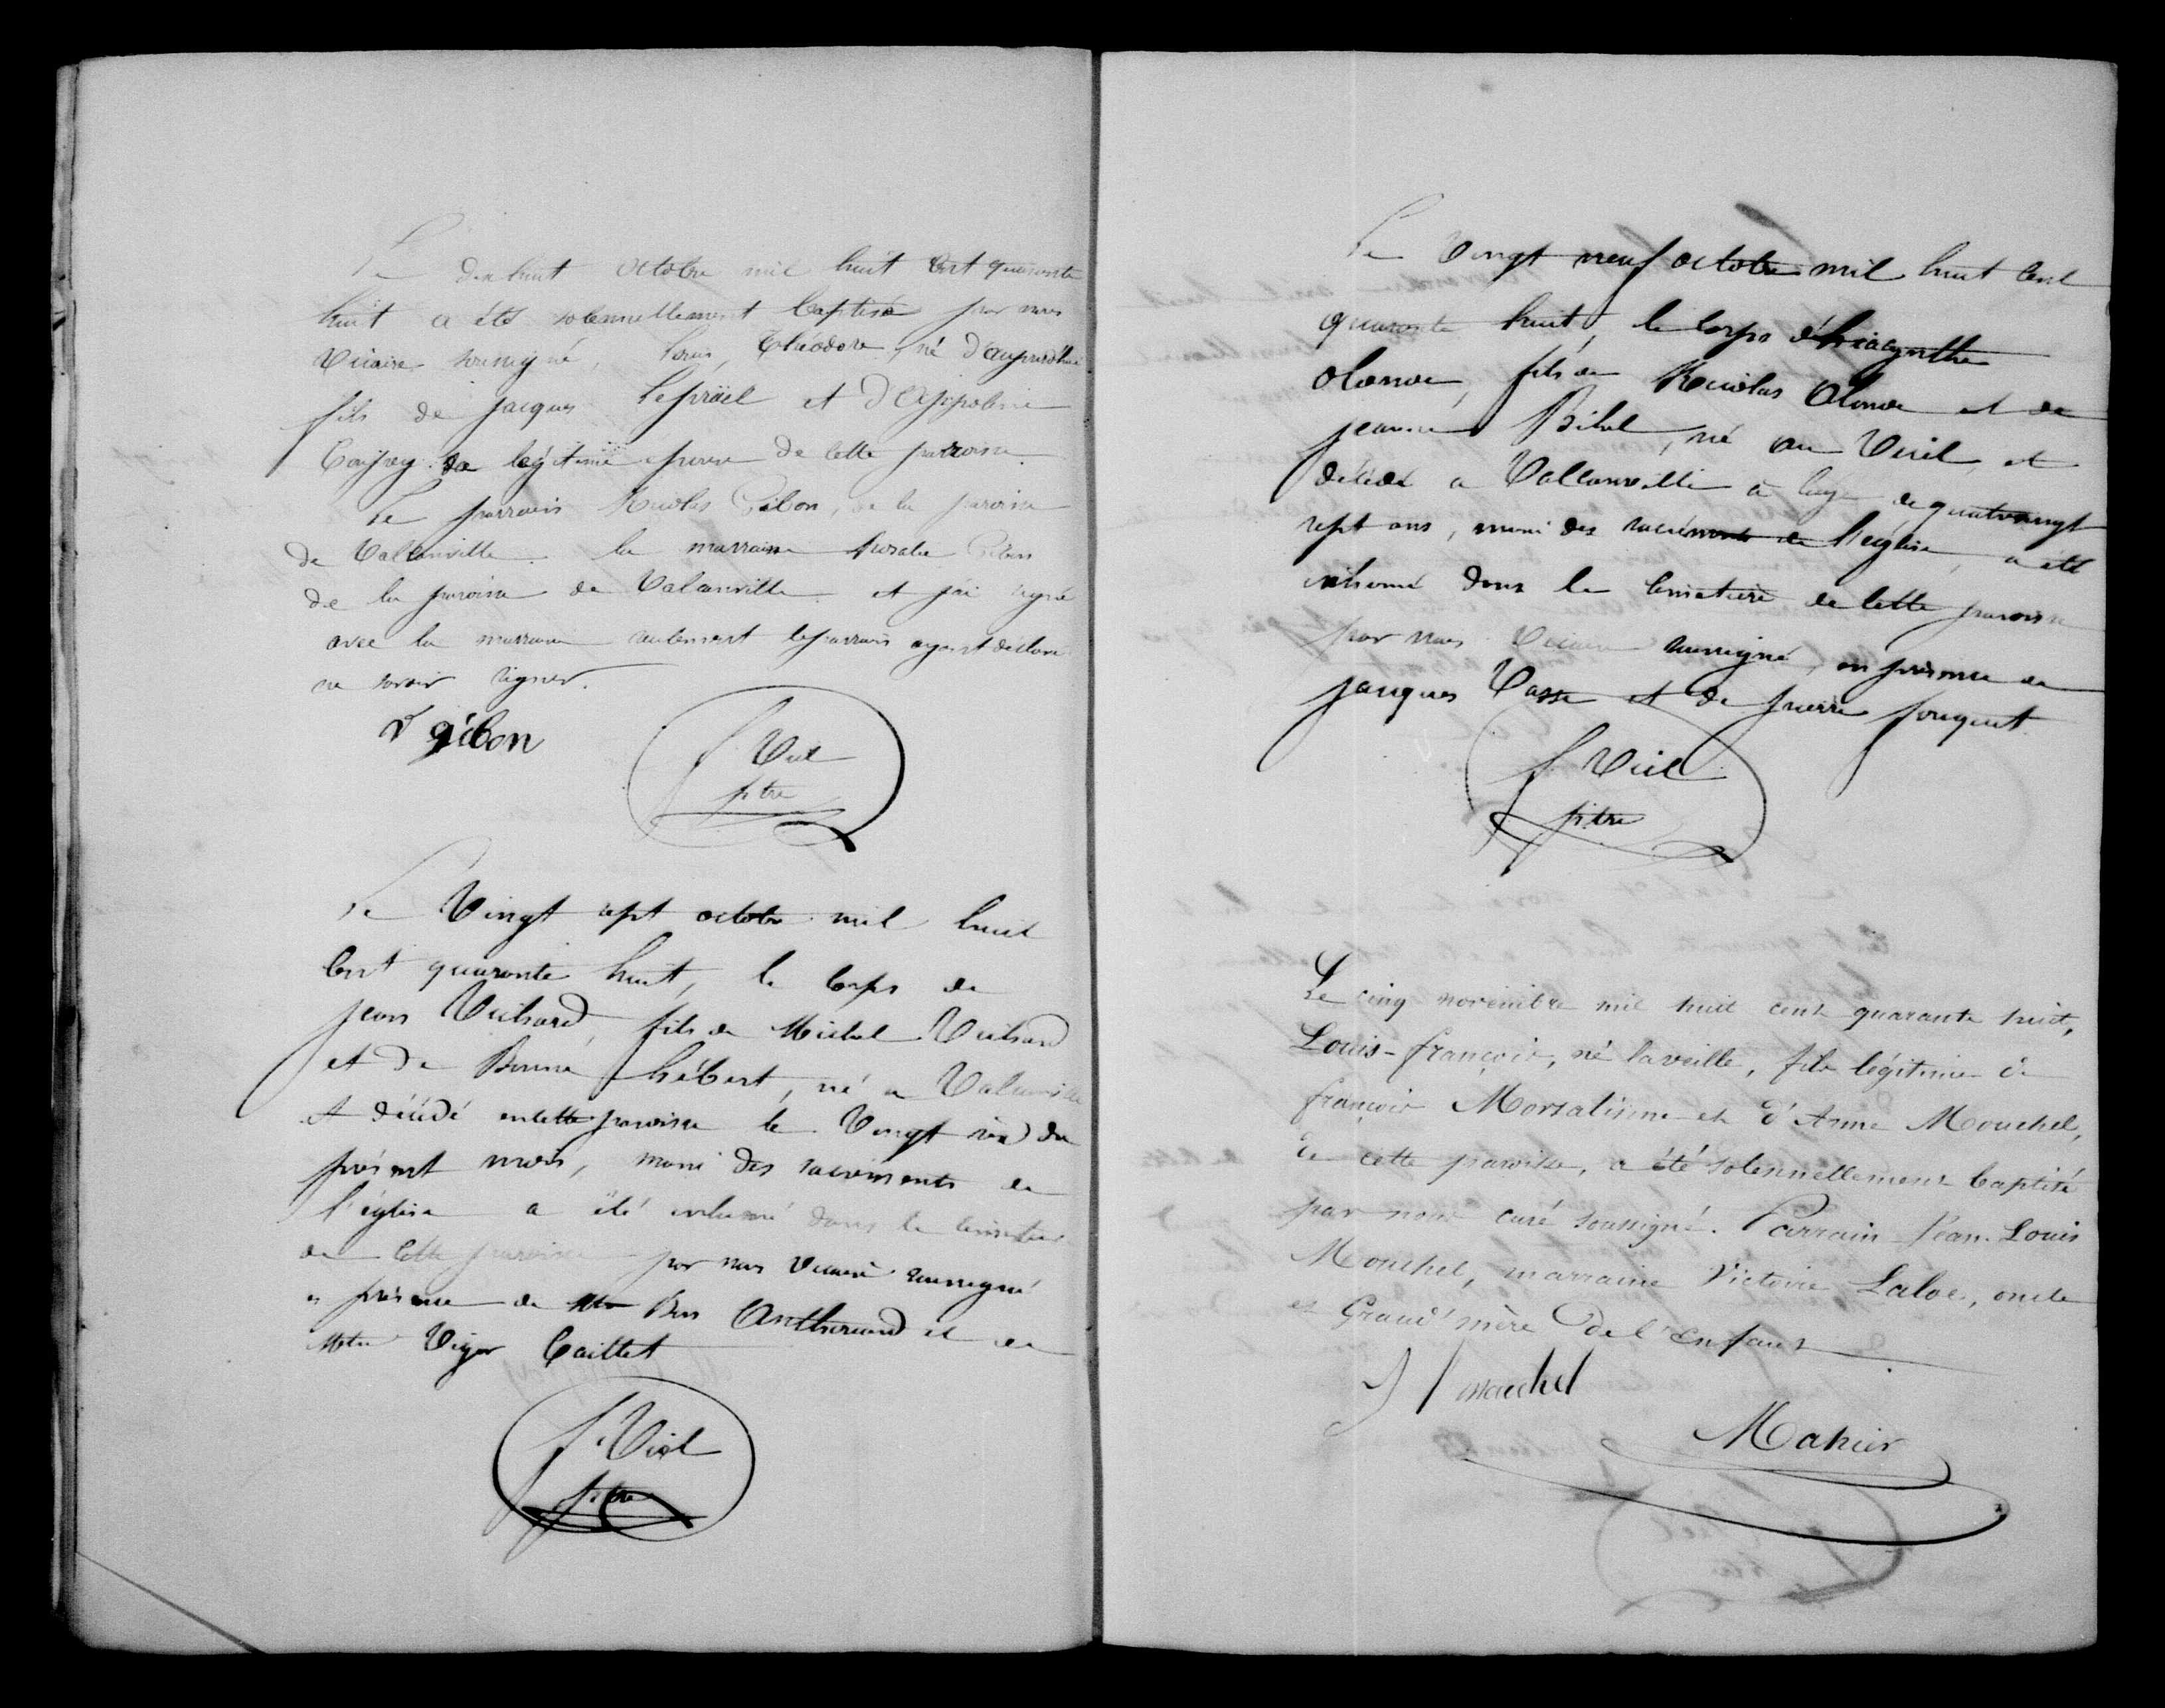 Le dix huit octobre mil huit cent quarante
huit a été solennellement baptisé par nous
vicaire soussigné, Louis, Théodore, né d'aujourd'hui
fils de jacques Lepriël et d'Appoline
de légitime épouse de cette paroisse.
Le parrain Nicolas Gibon, de la paroisse
de Valcanville. la marraine Gibon
de la paroisse de Valcanville. et j'ai signé
avec la marraine seulement le parrain ayant déclaré
ne savoir signer.
r gibon
f. Viel
ptre
Le Vingt sept octobre mil huit
cent quarante huit, le corps de
jean Vichard, fils de Michel Vichard
et de Bonne hébert, né a Valcanville
et décédé en cette paroisse le Vingt six du
présent mois, muni des sacrements de
l'église a été inhumé dans le cimetière
de cette paroisse par nous vicaire soussigné
en présence de Bon Anthouard et de
Vigor Caillet
f. Viel
ptre
Le Vingt neuf octobre mil huit cent
quarante huit, le corps d'hiacynthe
olonde, fils de Nicolas Olonde et de
jeanne , né au Vicel et
décédé a Valcanville à l'age de quatrevingt
sept ans, muni des sacréments de l'église, a été
inhumé dans le cimetière de cette paroisse
par nous vicaire soussigné, en présence de
jacques Vasse et de pierre fouquet
f. Viel
ptre
Le cinq novembre mil huit cent quarante huit,
Louis-françois, né la veille, fils légitime de
françois Morsalinne et d'Anne Mouchel,
de cette paroisse, a été solennellement baptisé
par nous curé soussigné. Parrain Jean-Louis
Mouchel, marraine Victoire Laloe, oncle
et Grand'mère de l'enfant
J l mouchel
Mahier